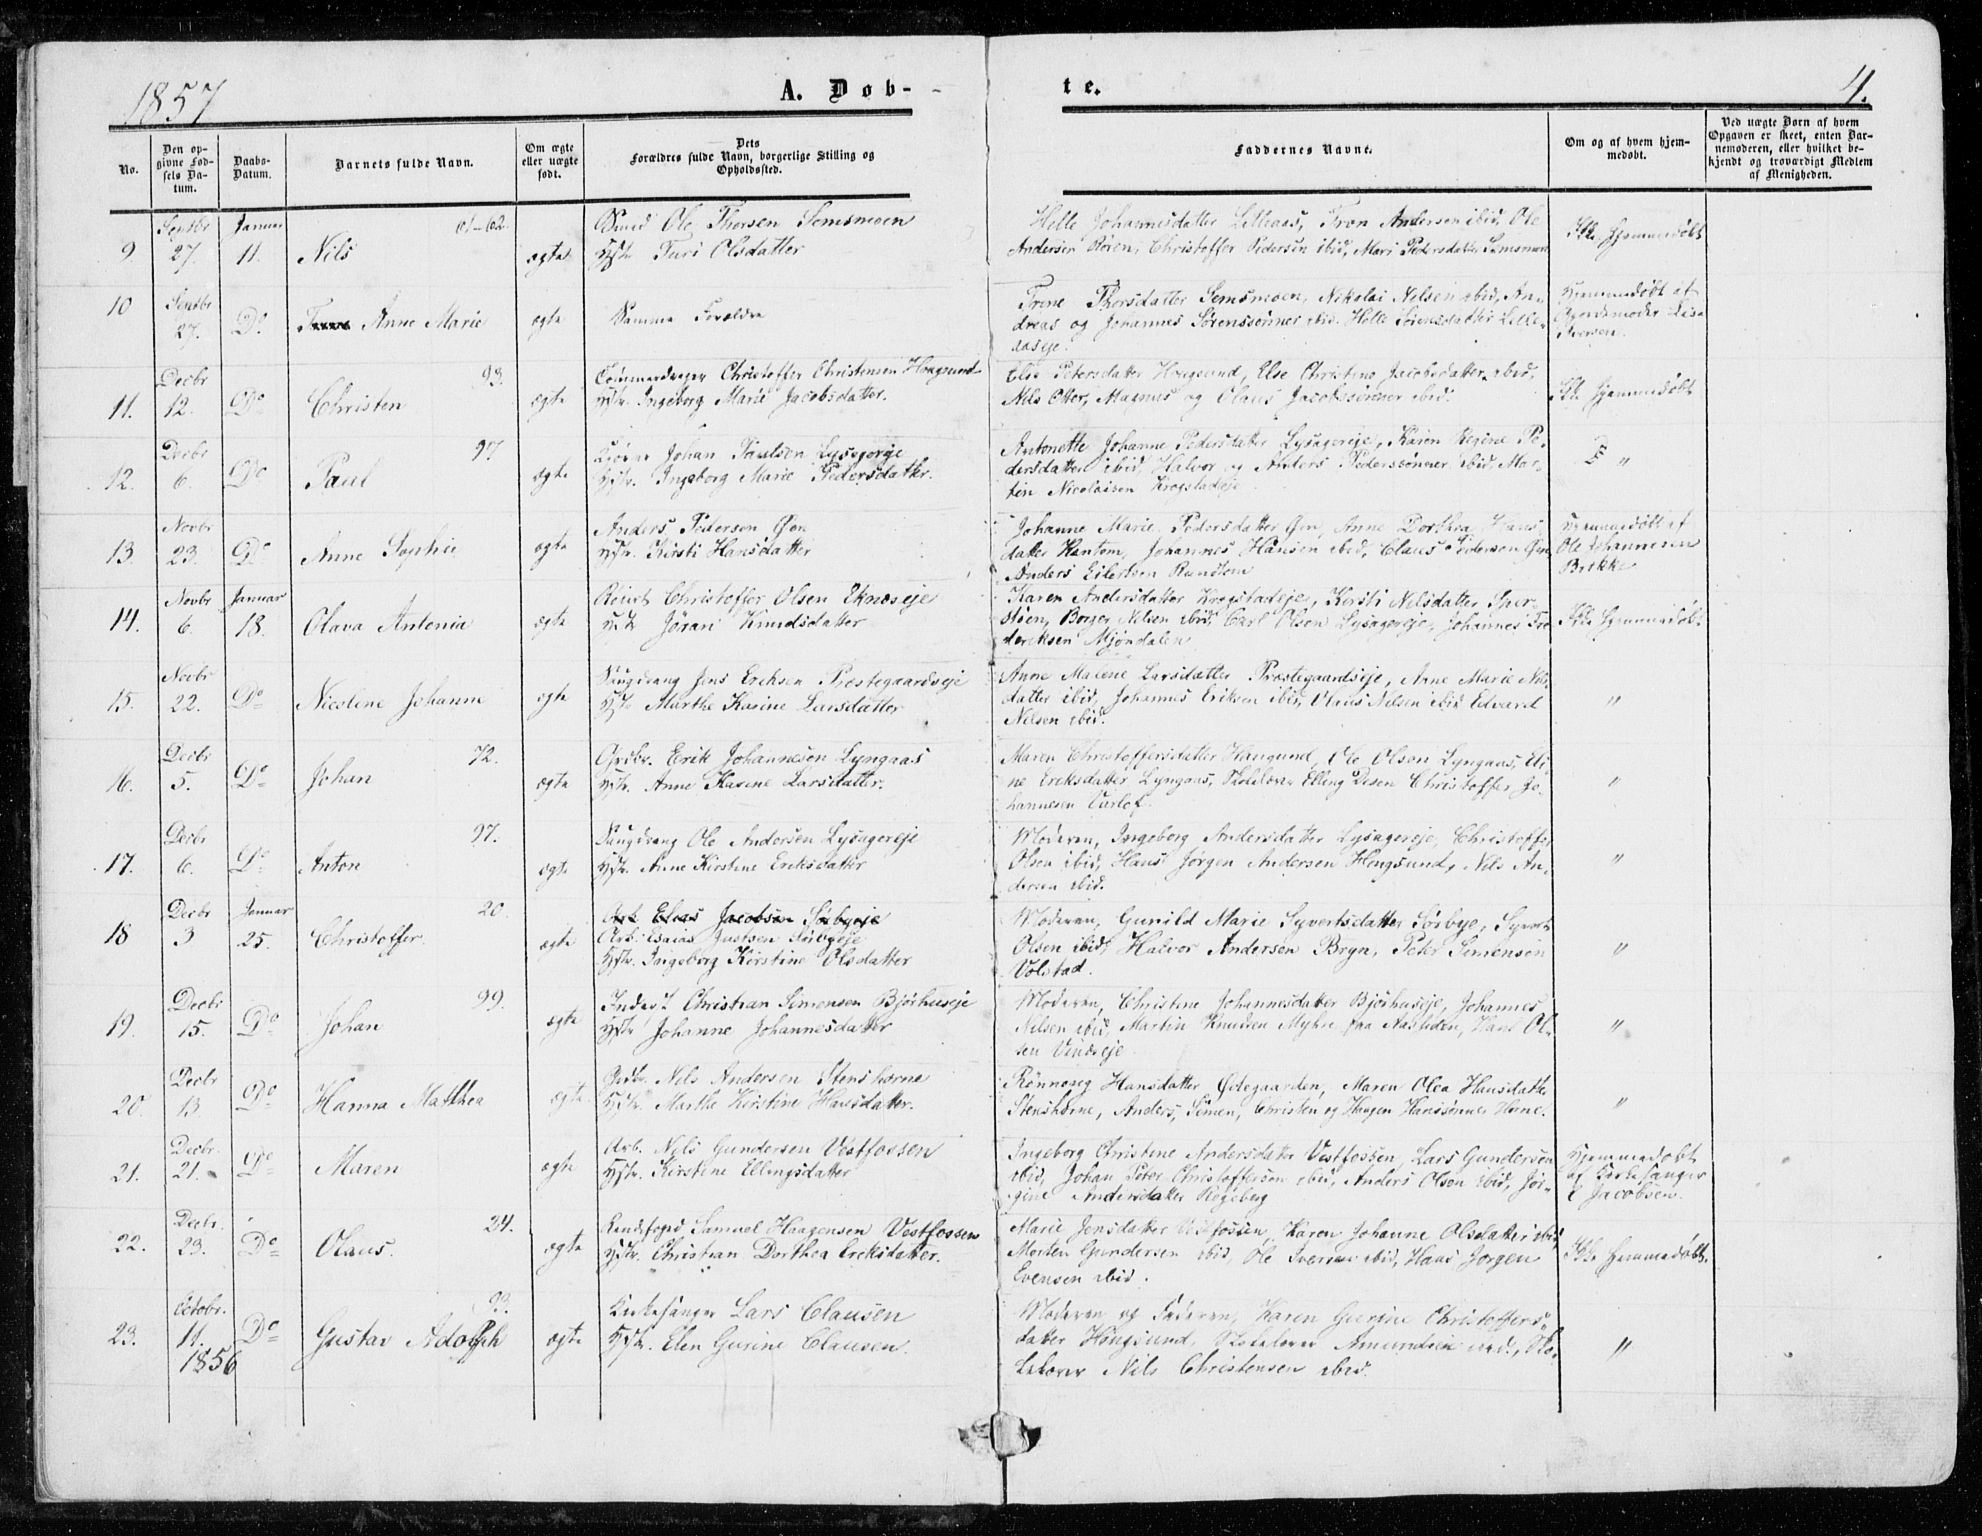 1857
A. Døb-
te.
4.
No.
Den op-
givne Fød-
sels Da-
tum.
Daabs-
Datum.
Barnets fulde Navn.
Om ægte
eller uægte
født.
Dets
Forældres fulde Navn, borgerlige Stilling og
Opholdssted.
Faddernes Navne.
Om og af hvem hjem-
medøbt.
Ved uægte Børn af hvem
Opgaven er skeet, enten Bar-
nemoderen, eller hvilket be-
kjendt og troværdigt Medlem
af Menigheden.
9 Septbr 27. Januar 11. Nils 61-62. ægte
Ole Thorsen Semsmoen
Hstr. Turi Olsdatter
Helle Johannesdatter Lilleaas, Tron Andersen ibid, Ole
Andersen Røren, Christoffer Pedersen ibid, Mari Pedersdatter Semsmoen
Ikke hjemmedøbt
10 Septbr 27. Do Anne Marie ægte
Samme Forældre
Trine Thorsdatter Semsmoen, Nikolai Nilsen ibid, An-
dreas og Johannes Sørenssønner ibid. Helle Sørensdatter Lille-
aaseje.
Hjemmedøbt af
Gjordemoder Lisa
Iversen.
11. Decbr 12. Do Christen 93. ægte
Christoffer Christensen Hougsund
Hstr. Ingeborg Marie Jacobsdatter.
Elie Petersdatter Hougsund, Else Christine Jacobsdatter ibid,
Nils Otter, Magnus og Olaus Jacobssønner ibid.
Ikke hjemmedøbt
12. Decbr 6. Do Paul 97 ægte
Johan Paulsen Lysagereje
Hstr. Ingeborg Marie Pedersdatter.
Antonette Johanne Pedersdatter Lysagereje, Karen Regine Pe-
dersdatter ibid, Halvor og Anders Pederssønner ibid, Mar-
tin Nicolaisen Krogstadeje
"
13. Novbr 23. Do Anne Sophie ægte
Anders Pedersen Øen
Hstr. Kirsti Hansdatter
Johanne Marie Pedersdatter Øen, Anne Dorthea Hans-
datter Hantom, Johannes Hansen ibid, Claus Pedersen Øen
Anders Eilertsen Rundtom
Hjemmedøbt af
Ole Johannesen
Brekke
14. Novbr 6. Januar 18. Olava Antonia ægte
Christoffer Olsen Eknæseje
Hstr Jøran Knudsdatter
Karen Andersdatter Krogstadeje, Kirsti Nilsdatter
støen, Borger Nilsen ibid, Carl Olsen Lysagereje, Johannes Fre
dericksen Mjøndalen
Ikke hjemmedøbt
15. Novbr 22. Do Nicoline Johanne ægte
Saugdreng Jens Eriksen Præstegaardseje
Hstr Marthe Karine Larsdatter
Anne Malene Larsdatter Præstegaardseje, Anne Marie Nils-
datter ibid, Johannes Eriksen ibid, Olaus Nilsen ibid Edvard
Nilsen ibid.
"
16. Decbr 5. Do Johan 72. ægte
Grdbr. Erik Johannesen Lyngaas
Hstr. Anne Karine Larsdatter.
Maren Christoffersdatter Haugsund, Ole Olsen Lyngaas, Eli-
ne Eriksdatter Lyngaas, Skolelærer Elling Desen Christoffer Jo-
hannesen
"
17. Decbr 6. Do Anton 97. ægte
Saugdreng Ole Andersen Lysagereje
Hstr. Anne Kirstine Eriksdatter
Moderen, Ingeborg Andersdatter Lysagereje, Christoffer
Olsen ibid, Hans Jørgen Andersen Hougsund, Nils An-
dersen ibid.
"
18 Decbr 3 Januar 25. Christoffer. 20. ægte
Elias Jacobsen Sørbyeje
Arb. Esaias Justsen Sørbyeje
Hstr. Ingeborg Kirstine Olsdatter
Moderen, Gunild Marie Syvertsdatter Sørbye, Syvert
Olsen ibid, Halvor Andersen Bryn, Peter Simensen
Volstad.
"
19. Decbr 15. Do Johan 99. ægte
Inderst Christian Simensen Bjørhuseje
Hstr Johanne Johannesdatter
Moderen, Christine Johannesdatter Bjørhuseje, Johannes
Nilsen ibid, Martin Knudsen Myhre paa Aasleden, Hans Ol-
sen Vindseje
"
20. Decbr 13 Do Hanna Mathea ægte
Grdbr. Nils Andersen Stenshorne
Hstr. Marthe Kirstine Hansdatter.
Rønnaug Hansdatter Ødegaarden, Maren Olea Hansdatter
Stenshorne, Anders, Simen, Christen og Haagen Hanssønner Horne.
"
21. Decbr. 21. Do Maren ægte
Arb. Nils Gundersen Vestfossen
Hstr. Kirstine Ellingsdatter
Ingeborg Christine Andersdatter Vestfossen, Lars Gundersen
ibid, Johan Peter Christoffersen ibid, Anders Olsen ibid, Jør-
gine Andersdatter Rogeberg
Hjemmedøbt
af Kirkesanger
Jacobsen.
22. Decbr. 23. Do Olaus. 24. ægte
Landsfoged Samuel Haagensen Vestfossen
Hstr. Christian Dorthea Eriksdatter.
Marie Jensdatter Vestfossen, Karen Johanne Olsdatter ibid,
Morten Gundersen ibid, Ole Iversen ibid, Hans Jørgen
Evensen ibid.
Ikke hjemmedøbt.
23. Octobr. 11. 1856 Do Gustav Adolph 93. ægte
Kirkesanger Lars Clausen
Hstr. Elen Gurine Clausen.
Moderen og Faderen, Karen Gurine Christoffers-
datter Hougsund, Skolelærer Amundsen ibid., Sko-
lelærer Nils Christensen ibid.
"